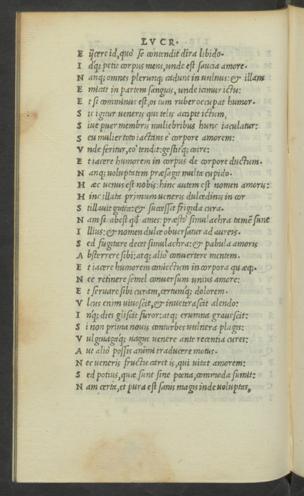 LVCR.
E ijcere id, quo se contendit dira libido.
I dq; petit corpus mens, unde est saucia amore.
N anq; omnes plerunq; cadunt in uulnus: & illam
E micat in partem sanguis, unde icimur ictu:
E t si cominus est, os tum ruber occupat humor.
S ic igitur ueneris qui telis accipit ictum,
S iue puer membris muliebribus hunc iaculatur:
S eu mulier toto iactans è corpore amorem:
V nde feritur, eo tendit: gestitq; coire:
E t iacere humorem in corpus de corpore ductum.
N anq; uoluptatem præsagit multa cupido.
H æc uenus est nobis: hinc autem est nomen amoris:
H inc illæ primum ueneris dulcedinis in cor
S tillauit gutta: & successit frigida cura.
N am si abest quod ames: præsto simulachra tamen sunt
I llius: & nomen dulce obuersatur ad aureis.
S ed fugitare decet simulachra: & pabula amoris
A bsterrere sibi: atq; aliò conuertere mentem.
E t iacere humorem coniectum in corpora quæq;.
N ec retinere semel conuersum unius amore:
E t seruare sibi curam, certumq; dolorem.
V lcus enim uiuescit, & inueterascit alendo:
I nq; dies gliscit furor: atq; erumna grauescit:
S i non prima nouis conturbes uulnera plagis:
V ulgiuagaq; uagus uenere ante recentia cures:
A ut alio possis animi traducere motus.
N ec ueneris fructu caret is, qui uitat amorem:
S ed potius, quæ sunt sine pœna, commoda sumit:
N am certa, et pura est sanis magis inde uoluptas,